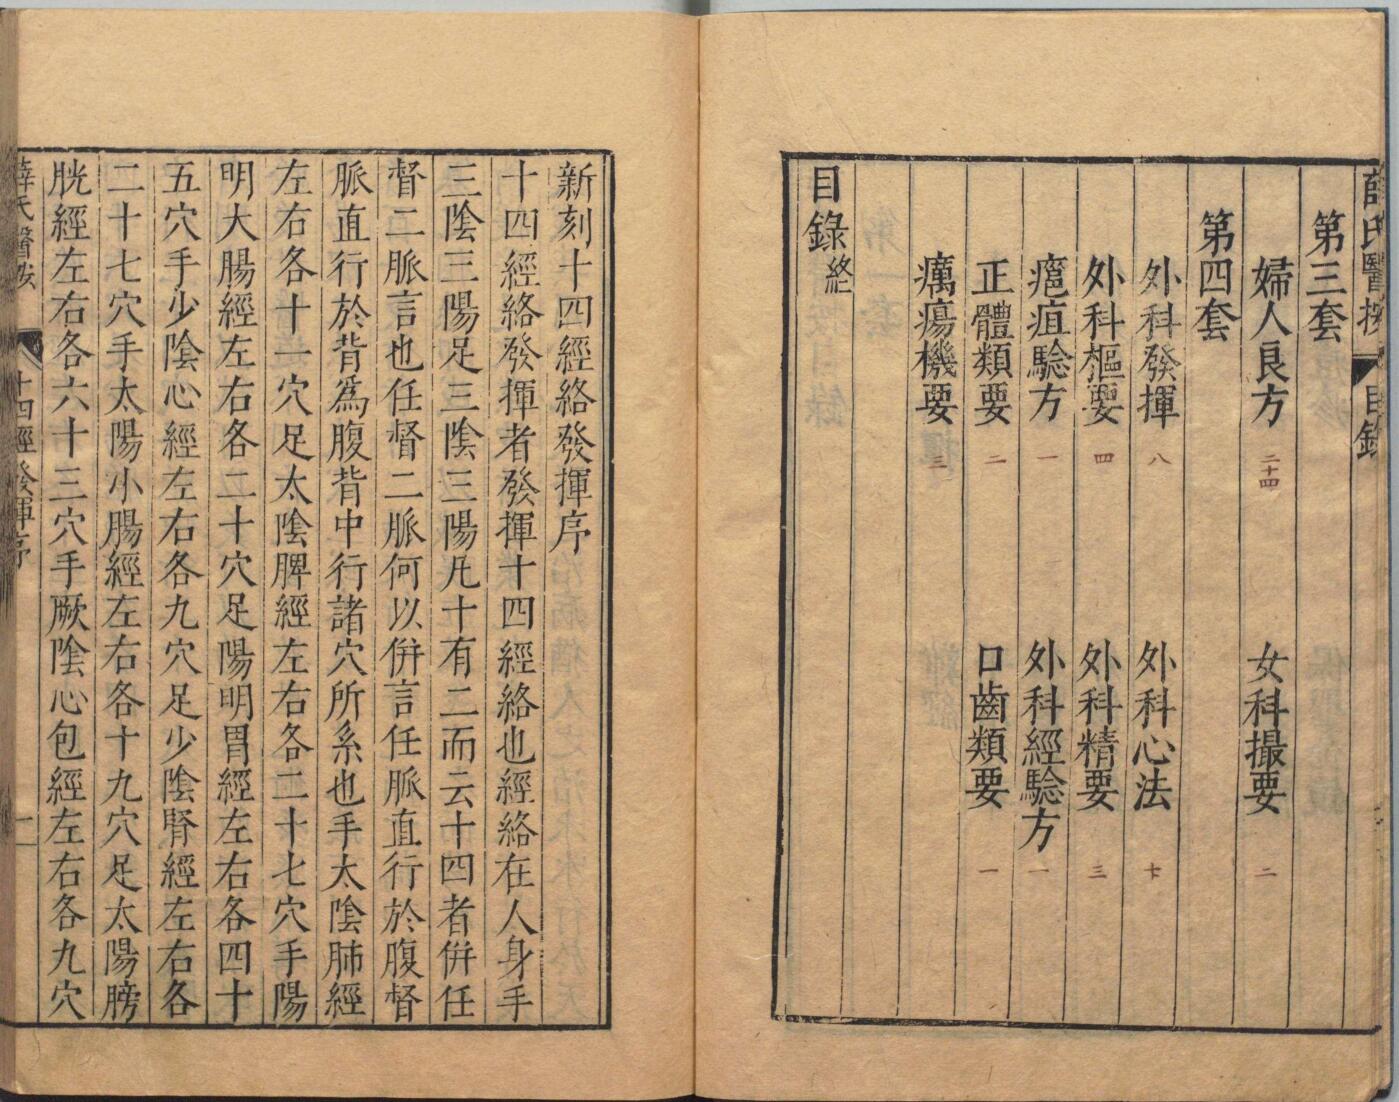 薛氏醫按 目錄
第三套
婦人良方 二十四 女科撮要 二
第四套
外科發揮 八 外科心法 七
外科樞要 四 外科精要 三
瘡疽驗方 一 外科經驗方 一
正體類要 二 口齒類要 一
癘瘍機要 三
目錄終
新刻十四經絡發揮序
十四經絡發揮者發揮十四經絡也經絡在人身手
三陰三陽足三陰三陽凡十有二而云十四者併任
督二脈言也任督二脈何以併言任脈直行於腹督
脈直行於背為腹背中行諸穴所系也手太陰肺經
左右各十一穴足太陰脾經左右各二十七穴手陽
明大腸經左右各二十穴足陽明胃經左右各四十
五穴手少陰心經左右各九穴足少陰腎經左右各
二十七穴手太陽小腸經左右各十九穴足太陽膀
胱經左右各六十三穴手厥陰心包經左右各九穴
薛氏醫按 十四經發揮序 一